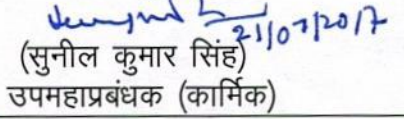 21/07/2017
(सुनील कुमार सिंह)
उपमहाप्रबंधक (कार्मिक)